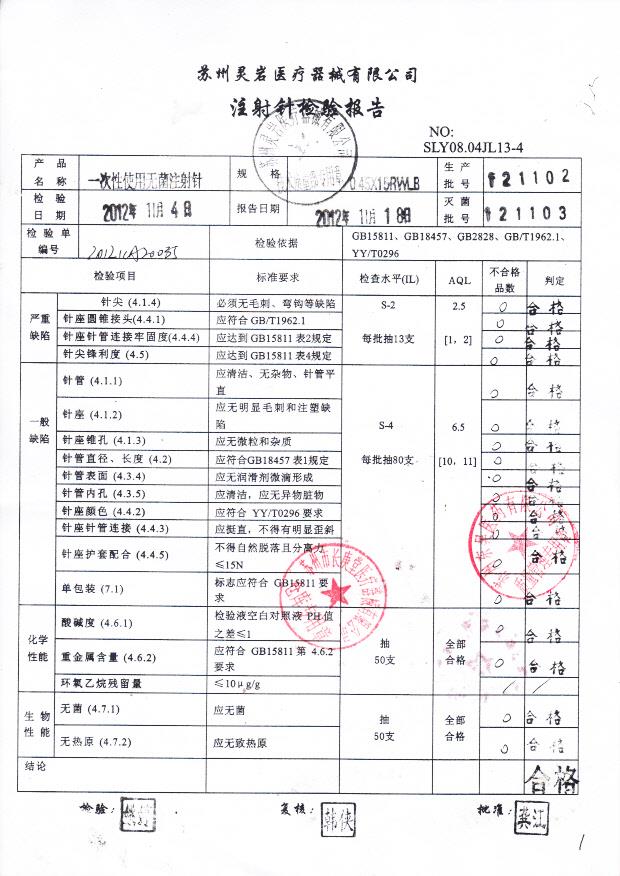 苏州灵岩医疗器械有限公司
注射针检验报告
NO:
SLY08.04JL13-4
产品名称 一次性使用无菌注射针 规格 0.45X15RWLB 生产批号 121102
检验日期 2012年 11月 4日 报告日期 2012年 11月 18日 灭菌批号 121103
检验单编号 检验依据 GB15811、GB18457、GB2828、GB/T1962.1、
YY/T0296
检验项目 标准要求 检查水平(IL) AQL 不合格品数 判定
严重缺陷
针尖 (4.1.4) 必须无毛刺、弯钩等缺陷 S-2 2.5 0 合格
针座圆锥接头(4.4.1) 应符合 GB/T1962.1 0 合格
针座针管连接牢固度(4.4.4) 应达到 GB15811 表2规定 每批抽13支 [1, 2] 0 合格
针尖锋利度 (4.5) 应达到 GB15811 表4规定 0 合格
一般缺陷
针管 (4.1.1) 应清洁、无杂物、针管平直 0 合格
针座 (4.1.2) 应无明显毛刺和注塑缺陷 S-4 6.5 0 合格
针座锥孔 (4.1.3) 应无微粒和杂质 0 合格
针管直径、长度 (4.2) 应符合GB18457 表1规定 每批抽80支 [10, 11] 0 合格
针管表面 (4.3.4) 应无润滑剂微滴形成 0 合格
针管内孔 (4.3.5) 应清洁，应无异物脏物 0 合格
针座颜色 (4.4.2) 应符合 YY/T0296 要求 0 合格
针座针管连接 (4.4.3) 应挺直，不得有明显歪斜 0 合格
针座护套配合 (4.4.5) 不得自然脱落且分离力≤15N 0 合格
单包装 (7.1) 标志应符合 GB15811 要求 0 合格
化学性能
酸碱度 (4.6.1) 检验液空白对照液 PH 值之差≤1 抽50支 全部合格 0 合格
重金属含量 (4.6.2) 应符合 GB15811 第 4.6.2 要求 0 合格
环氧乙烷残留量 ≤10μg/g / /
生物性能
无菌 (4.7.1) 应无菌 抽50支 全部合格 0 合格
无热原 (4.7.2) 应无致热原 0 合格
结论 合格
检验: 复核: 韩侠 批准: 龚江
1